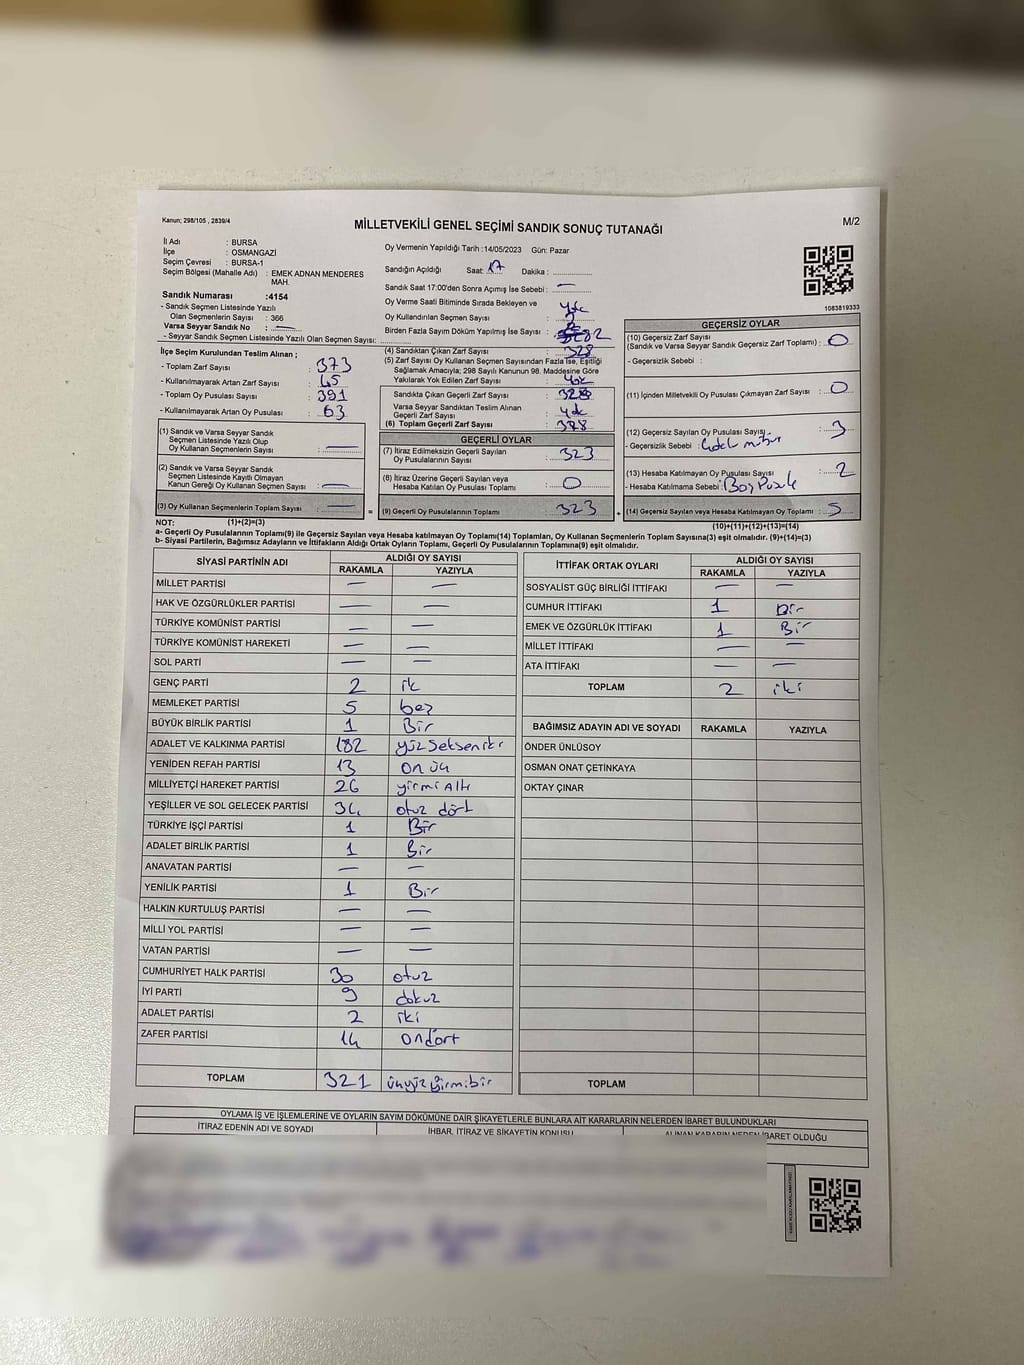 Kanun; 298/105 , 2839/4
MİLLETVEKİLİ GENEL SEÇİMİ SANDIK SONUÇ TUTANAĞI
M/2
İl Adı : BURSA
İlçe : OSMANGAZİ
Seçim Çevresi : BURSA-1
Seçim Bölgesi (Mahalle Adı) : EMEK ADNAN MENDERES MAH.
Sandık Numarası :4154
- Sandık Seçmen Listesinde Yazılı
Olan Seçmenlerin Sayısı : 366
Varsa Seyyar Sandık No : —
- Seyyar Sandık Seçmen Listesinde Yazılı Olan Seçmenlerin Sayısı:
Oy Vermenin Yapıldığı Tarih :14/05/2023 Gün: Pazar
Sandığın Açıldığı Saat: 17 Dakika :
Sandık Saat 17:00'den Sonra Açımış İse Sebebi : —
Oy Verme Saati Bitiminde Sırada Bekleyen ve
Oy Kullandırılan Seçmen Sayısı : yok
Birden Fazla Sayım Döküm Yapılmış İse Sayısı :
1083819333
İlçe Seçim Kurulundan Teslim Alınan ;
- Toplam Zarf Sayısı : 373
- Kullanılmayarak Artan Zarf Sayısı : 45
- Toplam Oy Pusulası : 391
- Kullanılmayarak Artan Oy Pusulası : 63
(1) Sandık ve Varsa Seyyar Sandık
Seçmen Listesinde Yazılı Olup
Oy Kullanan Seçmenlerin Sayısı : —
(2) Sandık ve Varsa Seyyar Sandık
Seçmen Listesinde Kayıtlı Olmayan
Kanun Gereği Oy Kullanan Seçmen Sayısı : —
(3) Oy Kullanan Seçmenlerin Toplam Sayısı : —
(1)+(2)=(3)
(4) Sandıktan Çıkan Zarf Sayısı : 328
(5) Zarf Sayısı Oy Kullanan Seçmen Sayısından Fazla İse, Eşitliği
Sağlamak Amacıyla; 298 Sayılı Kanunun 98. Maddesine Göre
Yakılarak Yok Edilen Zarf Sayısı : yok
Sandıkta Çıkan Geçerli Zarf Sayısı : 328
Varsa Seyyar Sandıktan Teslim Alınan
Geçerli Zarf Sayısı : yok
(6) Toplam Geçerli Zarf Sayısı : 328
GEÇERLİ OYLAR
(7) İtiraz Edilmeksizin Geçerli Sayılan
Oy Pusulalarının Sayısı : 323
(8) İtiraz Üzerine Geçerli Sayılan veya
Hesaba Katılan Oy Pusulası Toplamı : 0
= (9) Geçerli Oy Pusulalarının Toplamı : 323 +
GEÇERSİZ OYLAR
(10) Geçersiz Zarf Sayısı
(Sandık ve Varsa Seyyar Sandık Geçersiz Zarf Toplamı) : 0
- Geçersizlik Sebebi :
(11) İçinden Milletvekili Oy Pusulası Çıkmayan Zarf Sayısı : 0
(12) Geçersiz Sayılan Oy Pusulası Sayısı : 3
- Geçersizlik Sebebi :
(13) Hesaba Katılmayan Oy Pusulası Sayısı : 2
- Hesaba Katılmama Sebebi : Boş Pusula
(14) Geçersiz Sayılan veya Hesaba Katılmayan Oy Toplamı : 5
(10)+(11)+(12)+(13)=(14)
NOT:
a- Geçerli Oy Pusulalarının Toplamı(9) ile Geçersiz Sayılan veya Hesaba katılmayan Oy Toplamı(14) Toplamları, Oy Kullanan Seçmenlerin Toplam Sayısına(3) eşit olmalıdır. (9)+(14)=(3)
b- Siyasi Partilerin, Bağımsız Adayların ve İttifakların Aldığı Ortak Oyların Toplamı, Geçerli Oy Pusulalarının Toplamına(9) eşit olmalıdır.
SİYASİ PARTİNİN ADI ALDIĞI OY SAYISI
RAKAMLA YAZIYLA
MİLLET PARTİSİ — —
HAK VE ÖZGÜRLÜKLER PARTİSİ — —
TÜRKİYE KOMÜNİST PARTİSİ — —
TÜRKİYE KOMÜNİST HAREKETİ — —
SOL PARTİ — —
GENÇ PARTİ 2 iki
MEMLEKET PARTİSİ 5 beş
BÜYÜK BİRLİK PARTİSİ 1 Bir
ADALET VE KALKINMA PARTİSİ 182 yüz seksen iki
YENİDEN REFAH PARTİSİ 13 on üç
MİLLİYETÇİ HAREKET PARTİSİ 26 yirmi Altı
YEŞİLLER VE SOL GELECEK PARTİSİ 34 otuz dört
TÜRKİYE İŞÇİ PARTİSİ 1 Bir
ADALET BİRLİK PARTİSİ 1 Bir
ANAVATAN PARTİSİ — —
YENİLİK PARTİSİ 1 Bir
HALKIN KURTULUŞ PARTİSİ — —
MİLLİ YOL PARTİSİ — —
VATAN PARTİSİ — —
CUMHURİYET HALK PARTİSİ 30 otuz
İYİ PARTİ 9 dokuz
ADALET PARTİSİ 2 iki
ZAFER PARTİSİ 14 ondört
TOPLAM 321 üçyüzyirmibir
İTTİFAK ORTAK OYLARI ALDIĞI OY SAYISI
RAKAMLA YAZIYLA
SOSYALİST GÜÇ BİRLİĞİ İTTİFAKI — —
CUMHUR İTTİFAKI 1 Bir
EMEK VE ÖZGÜRLÜK İTTİFAKI 1 Bir
MİLLET İTTİFAKI — —
ATA İTTİFAKI — —
TOPLAM 2 iki
BAĞIMSIZ ADAYIN ADI VE SOYADI RAKAMLA YAZIYLA
ÖNDER ÜNLÜSOY
OSMAN ONAT ÇETİNKAYA
OKTAY ÇINAR
TOPLAM
OYLAMA İŞ VE İŞLEMLERİNE VE OYLARIN SAYIM DÖKÜMÜNE DAİR ŞİKAYETLERLE BUNLARA AİT KARARLARIN NELERDEN İBARET BULUNDUKLARI
İTİRAZ EDENİN ADI VE SOYADI İHBAR, İTİRAZ VE ŞİKAYETİN KONUSU ALINAN KARARIN NEDEN İBARET OLDUĞU